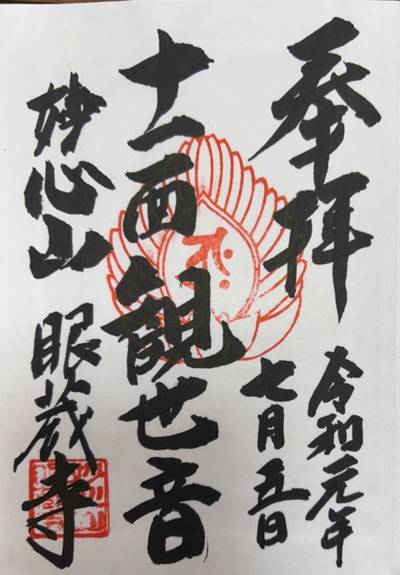 奉拝
令和元年
七月五日
十一面観世音
妙心山 眼蔵寺